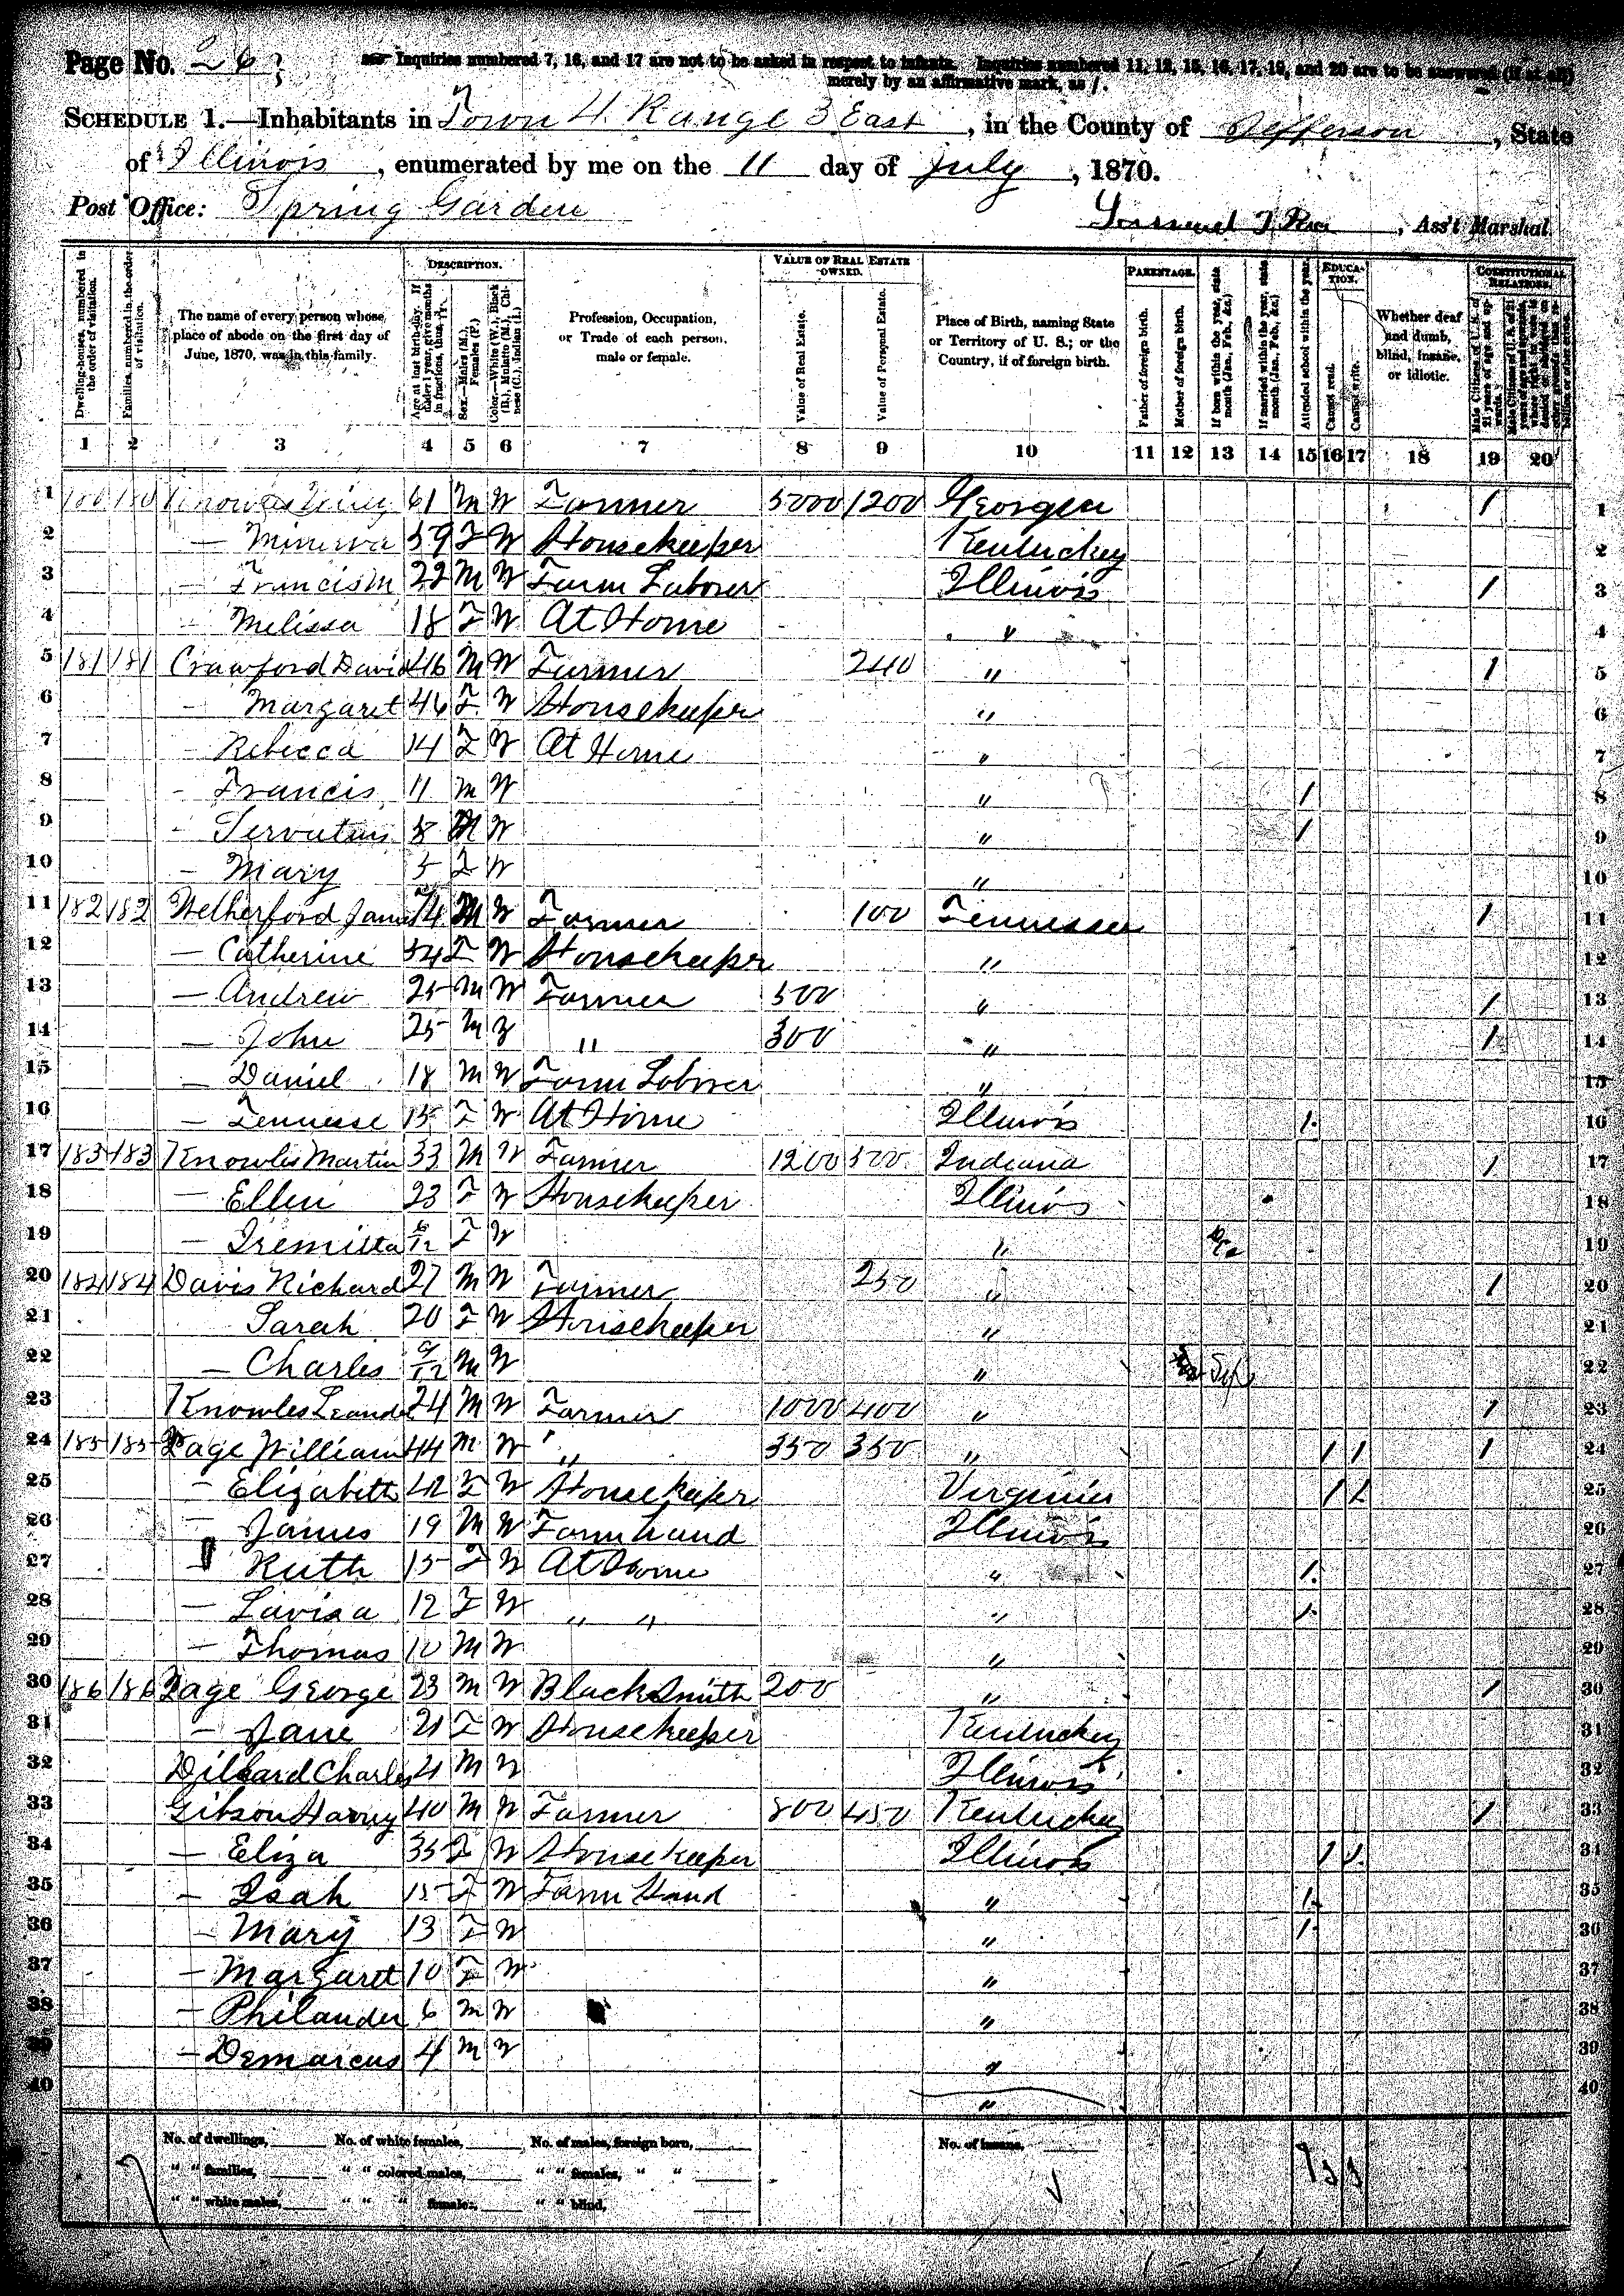 Page No. 26
Inquiries numbered 7, 16, and 17 are not to be asked in respect to infants. Inquiries numbered 11, 12, 15, 16, 17, 19, and 20 are to be answered (if at all)
merely by an affirmative mark, as /.
SCHEDULE 1.—Inhabitants in Town 4. Range 3 East, in the County of Jefferson, State
of Illinois, enumerated by me on the 11 day of July, 1870.
Post Office: Spring Garden
, Ass't Marshal.
Dwelling-houses, numbered in the order of visitation.
Families, numbered in the order of visitation.
The name of every person whose place of abode on the first day of June, 1870, was in this family.
DESCRIPTION.
Age at last birth-day. If under 1 year, give months in fractions, thus,
Sex.—Males (M.), Females (F.)
Color.—White (W.), Black (B.), Mulatto (M.), Chinese (C.), Indian (I.)
Profession, Occupation, or Trade of each person, male or female.
VALUE OF REAL ESTATE OWNED.
Value of Real Estate.
Value of Personal Estate.
Place of Birth, naming State or Territory of U. S.; or the Country, if of foreign birth.
PARENTAGE.
Father of foreign birth.
Mother of foreign birth.
If born within the year, state month (Jan., Feb., &c.)
If married within the year, state month (Jan., Feb., &c.)
EDUCATION.
Attended school within the year.
Cannot read.
Cannot write.
Whether deaf and dumb, blind, insane, or idiotic.
CONSTITUTIONAL RELATIONS.
Male Citizens of U. S. of 21 years of age and upwards.
1 2 3 4 5 6 7 8 9 10 11 12 13 14 15 16 17 18 19 20
1 180 180 61 M W Farmer 5000 1200 Georgia / 1
2 — Minerva 59 F W Housekeeper Kentucky 2
3 — Francis M 22 M W Farm Laborer Illinois / 3
4 — Melissa 18 F W At Home " 4
5 181 181 Crawford David 46 M W Farmer 240 " / 5
6 — Margaret 46 F W Housekeeper " 6
7 — Rebecca 14 F W At Home " 7
8 — Francis 11 M W " / 8
9 — 8 M W " / 9
10 — Mary 5 F W " 10
11 182 182 Wetherford James 74 M W Farmer 100 Tennessee / 11
12 — Catherine 54 F W Housekeeper " 12
13 — Andrew 25 M W Farmer 500 " / 13
14 — John 25 M W " 300 " / 14
15 — Daniel 18 M W Farm Laborer " 15
16 — Tennesse 15 F W At Home Illinois / 16
17 183 183 Knowles Martin 33 M W Farmer 1200 500 Indiana / 17
18 — Ellen 23 F W Housekeeper Illinois 18
19 — Iremitta 6/12 F W " 19
20 184 184 Davis Richard 27 M W Farmer 250 " / 20
21 Sarah 20 F W Housekeeper " 21
22 — Charles 9/12 M W " Sep 22
23 Knowles Leander 24 M W Farmer 1000 400 " / 23
24 185 185 Page William 44 M W " 350 350 " / / / 24
25 — Elizabeth 42 F W Housekeeper Virginia / / 25
26 — James 19 M W Farm hand Illinois 26
27 — Ruth 15 F W At Home " / 27
28 — Lavisa 12 F W " " " / 28
29 — Thomas 10 M W " 29
30 186 186 Page George 23 M W Blacksmith 200 " / 30
31 — Jane 21 F W Housekeeper Kentucky 31
32 Dillard Charles 4 M W Illinois 32
33 Gibson Harvy 40 M W Farmer 800 450 Kentucky / 33
34 — Eliza 35 F W Housekeeper Illinois / / 34
35 — Isah 15 F W Farm Hand " / 35
36 — Mary 13 F W " / 36
37 — Margaret 10 F W " 37
38 — Philander 6 M W " 38
39 — Demarcus 4 M W " 39
40 " 40
No. of dwellings, No. of white females, No. of males, foreign born, No. of insane,
" " families, " " colored males, " " females, " "
" " white males, " " " females, " " blind,